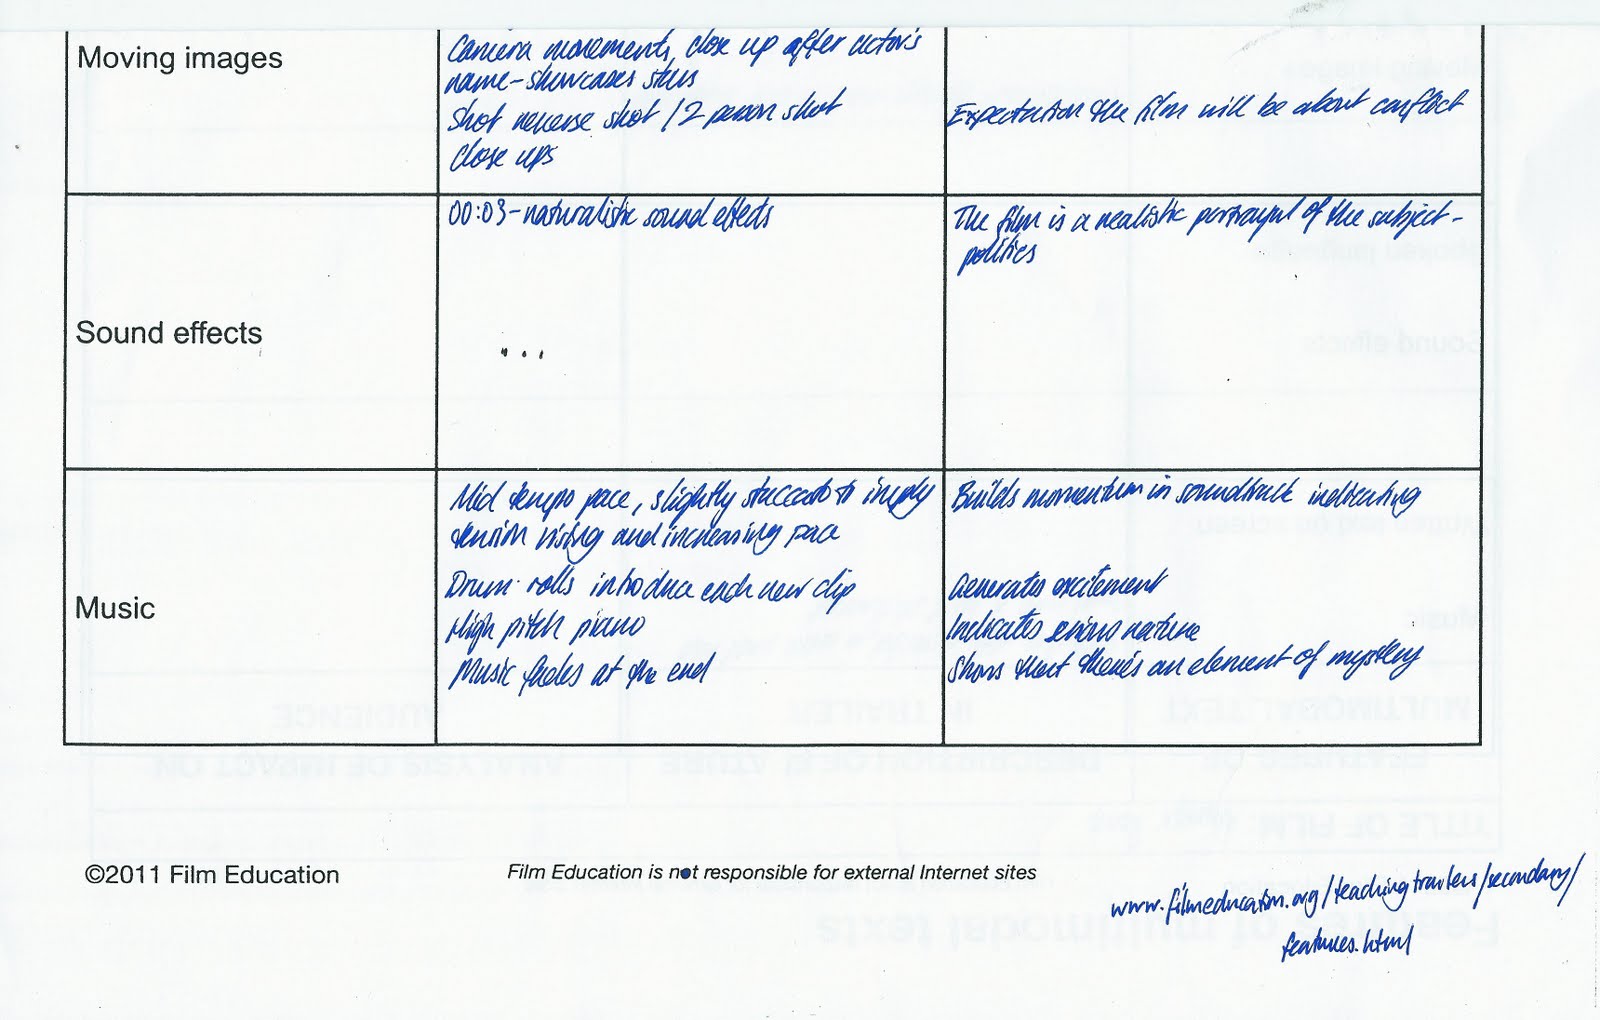 Moving images
Camera movements, close up after actor's
name - showcases stars
Shot reverse shot / 2 person shot
Close ups
Expectation the film will be about conflict
Sound effects
00:03 - naturalistic sound effects
...
The film is a realistic portrayal of the subject -
politics
Music
Mid tempo pace, slightly staccato to imply
tension rising and increasing pace
Drum rolls introduce each new clip
High pitch piano
Music fades at the end
Builds momentum in soundtrack indicating
Generates excitement
Indicates serious nature
Shows that there's an element of mystery
©2011 Film Education
Film Education is not responsible for external Internet sites
www.filmeducation.org/teachingtrailers/secondary/
features.html